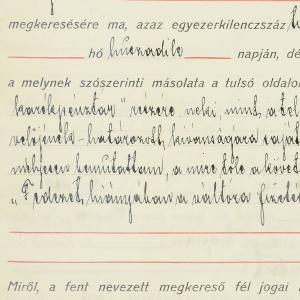 megkeresésére ma, azaz egyezerkilenczszáz
hó huszadik napján, dé
a melynek szószerinti másolata a tulsó oldalo
karékpénztár" részére neki, mint a tel
velőjének határozott kivánságára saját
mélyesen bemutattam, a mire tőle a követ
"Fedezet hiányában a váltóra fizeté
Miről, a fent nevezett megkereső fél jogai